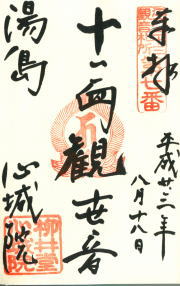 奉拝
平成廿三年
八月十八日
十一面観世音
湯島
心城院
柳井堂
心城院